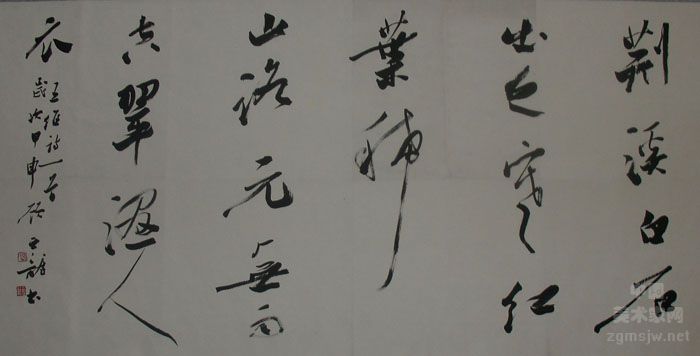 荆溪白石
出天寒红
葉稀
山路元無雨
空翠濕人
衣
王维诗一首
歲次甲申
書
中国
美术家网
zgmsjw.net